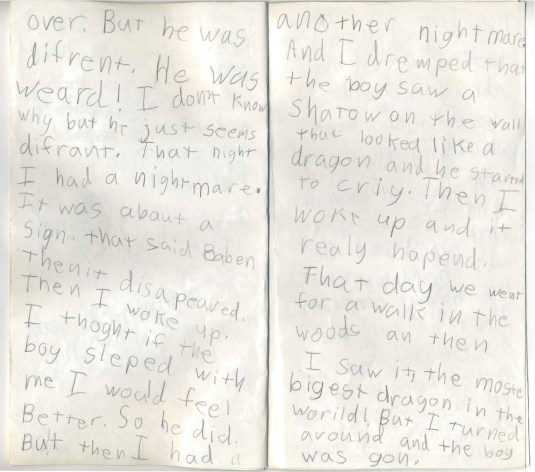 over. But he was
difrent. He was
weard! I don't know
why but he just seems
difrant. That night
I had a nightmare.
It was abaut a
Sign. that said Baben
thenit disapeared.
Then I woke up.
I thoght if the
boy sleped with
me I would feel
Better. So he did.
But then I had a
another nightmare.
And I dremped that
the boy saw a
Shatow on the wall
that looked like a
dragon and he started
to criy. Then I
woke up and it
realy hapend.
That day we went
for a walk in the
woods an then
I saw it, the moste
bigest dragon in the
worild! But I turned
around and the boy
was gon.